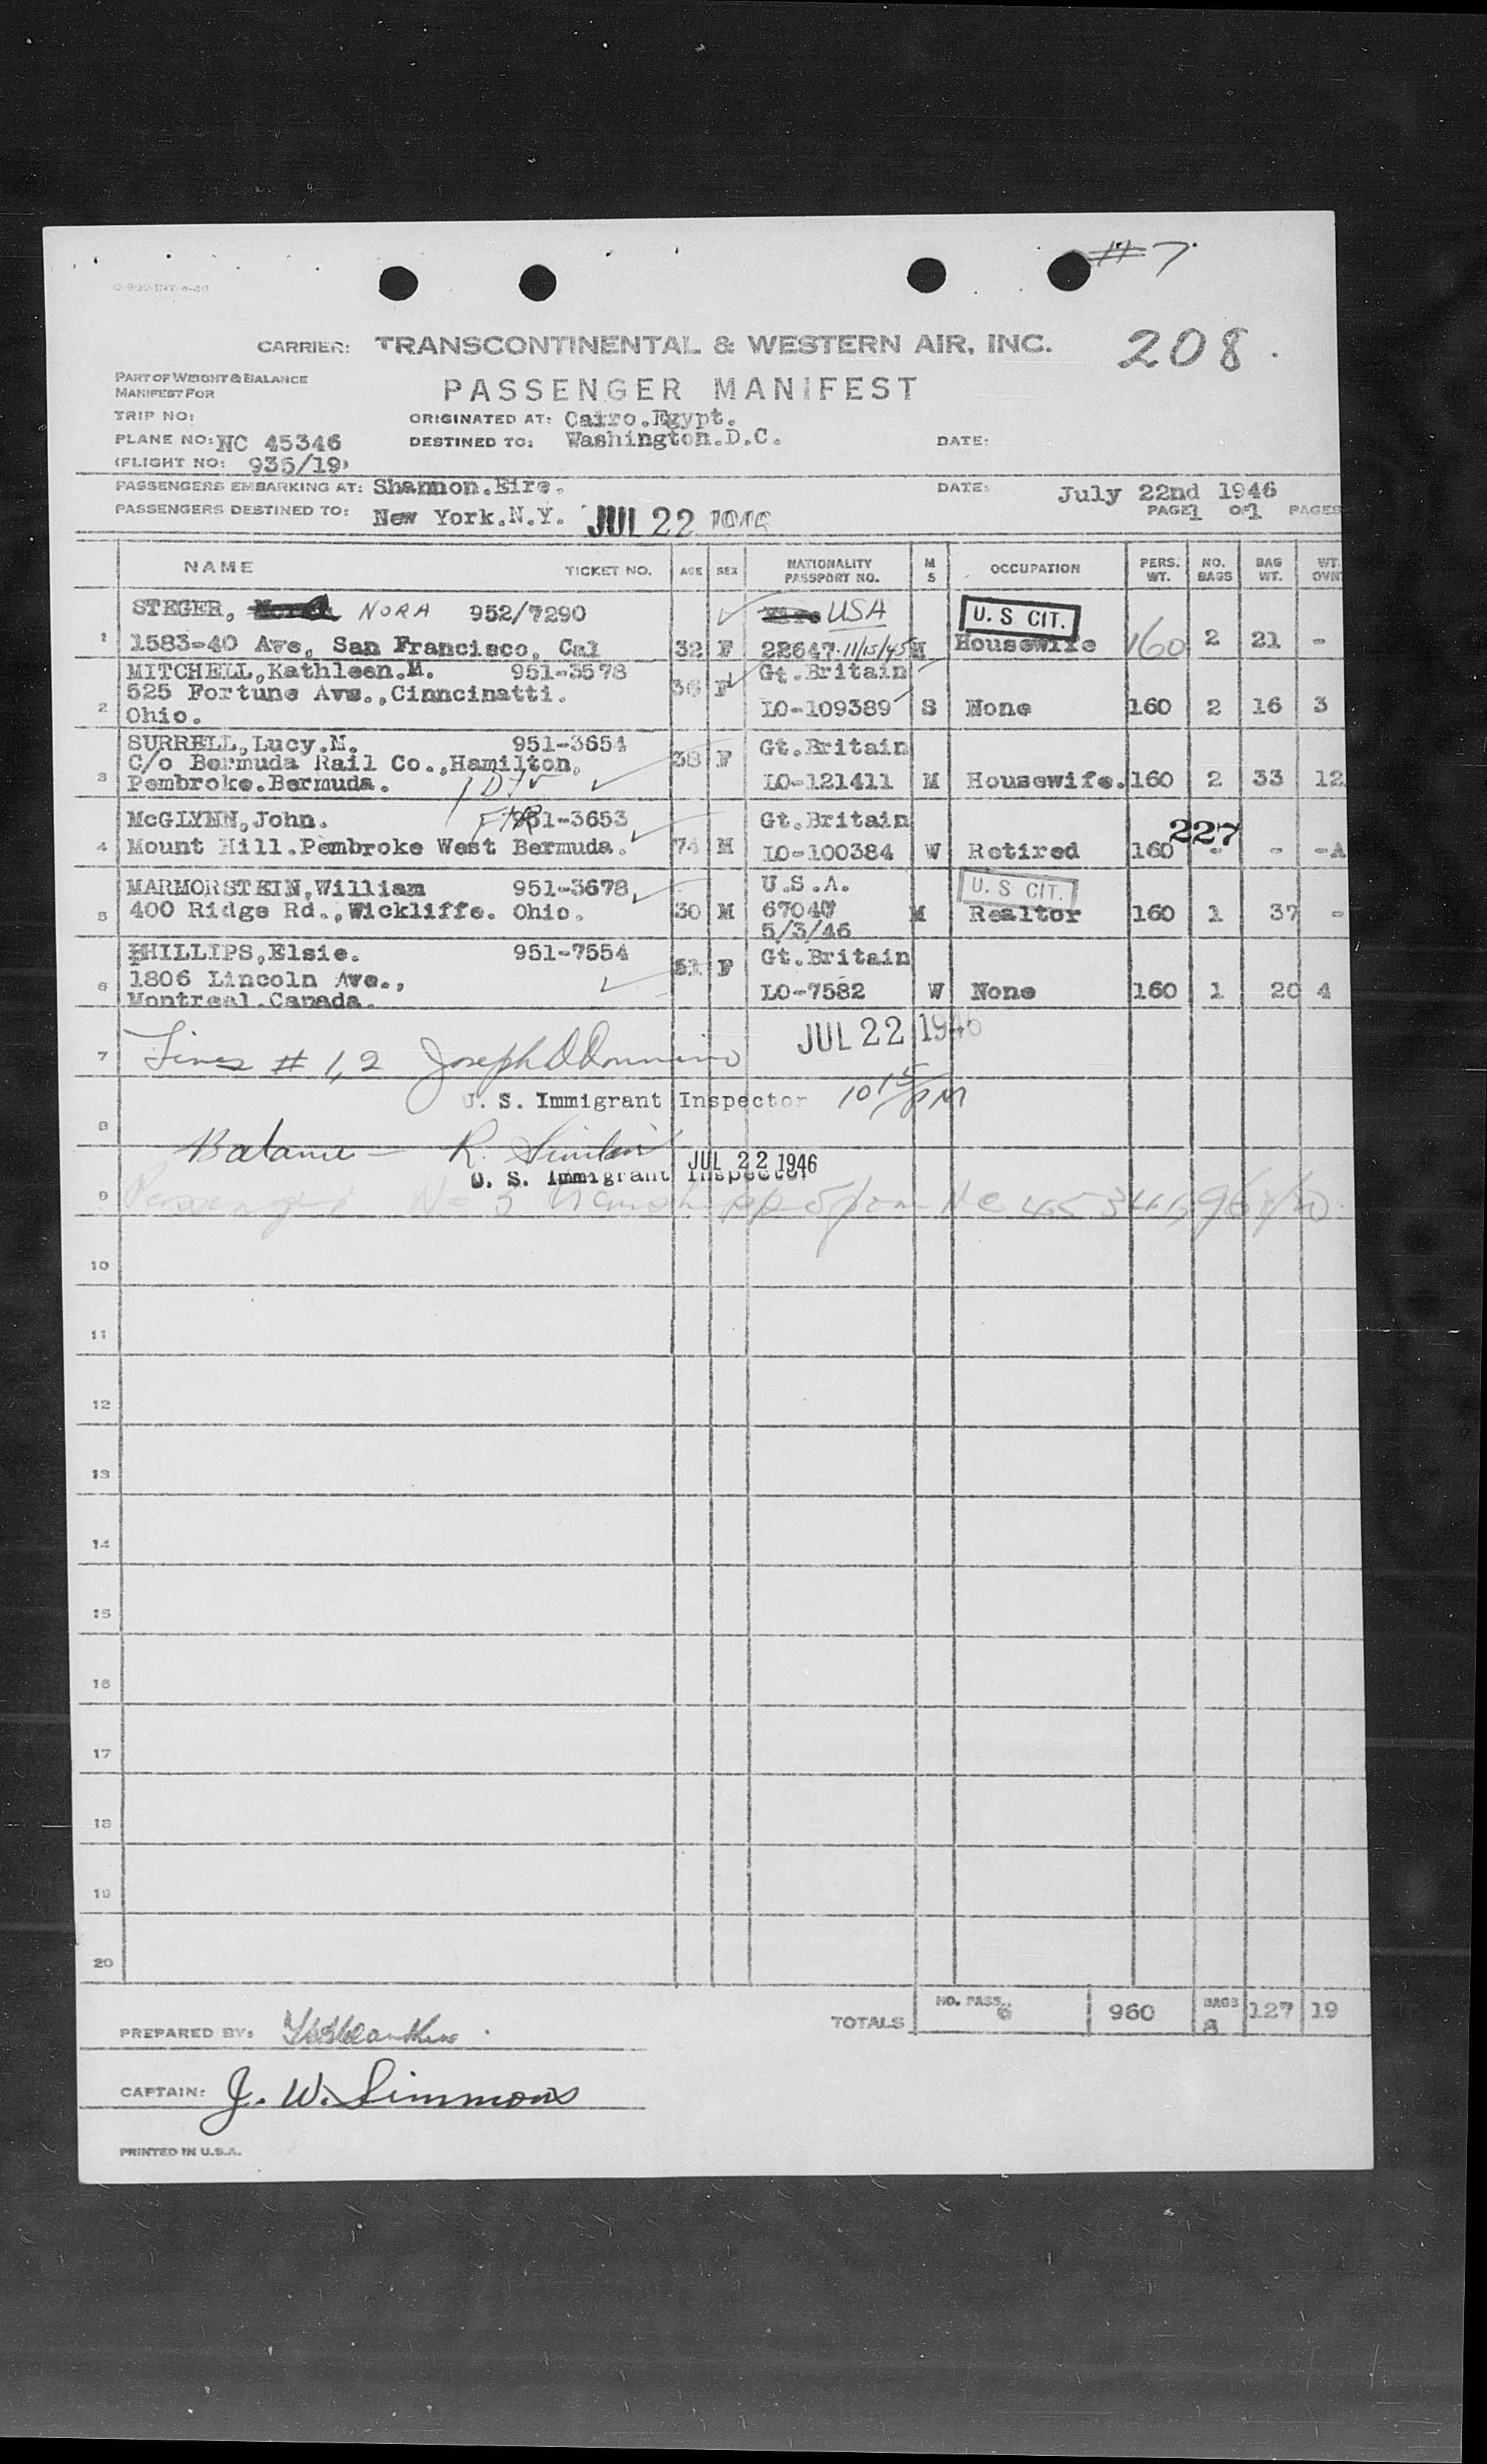 #7
208.
CARRIER: TRANSCONTINENTAL & WESTERN AIR, INC.
PART OF WEIGHT & BALANCE
MANIFEST FOR
PASSENGER MANIFEST
TRIP NO: ORIGINATED AT: Cairo.Egypt.
PLANE NO: NC 45346 DESTINED TO: Washington.D.C. DATE:
(FLIGHT NO: 935/19)
PASSENGERS EMBARKING AT: Shannon.Eire. DATE: July 22nd 1946
PASSENGERS DESTINED TO: New York.N.Y. JUL 22 1946 PAGE 1 OF 1 PAGES
NAME TICKET NO. AGE SEX NATIONALITY PASSPORT NO. M S OCCUPATION PERS. WT. NO. BAGS BAG WT. WT. OVN
STEGER, NORA 952/7290 USA U. S CIT.
1 1583-40 Ave, San Francisco, Cal 32 F 22647 11/15/45 M Housewife 160 2 21 -
MITCHELL,Kathleen.M. 951-3578 Gt.Britain
525 Fortune Ave.,Cinncinatti. 36 F
2 Ohio. LO-109389 S None 160 2 16 3
SURRELL,Lucy.M. 951-3654 Gt.Britain
C/o Bermuda Rail Co.,Hamilton. 38 F
3 Pembroke.Bermuda. LO-121411 M Housewife. 160 2 33 12
McGLYNN,John. 951-3653 Gt.Britain 227
4 Mount Hill.Pembroke West Bermuda. 74 M LO-100384 W Retired 160 - - -A
MARMORSTEIN,William 951-3678 U.S.A. U. S CIT.
5 400 Ridge Rd.,Wickliffe. Ohio. 30 M 67040 M Realtor 160 1 37 -
5/3/46
PHILLIPS,Elsie. 951-7554 Gt.Britain
1806 Lincoln Ave., 51 F
6 Montreal.Canada. LO-7582 W None 160 1 20 4
JUL 22 1946
7 Lines # 1,2 Joseph
U. S. Immigrant Inspector 10 15 PM
8
Balance — R.
JUL 22 1946
U. S. Immigrant Inspector
9
10
11
12
13
14
15
16
17
18
19
20
TOTALS NO. PASS. 6 960 BAGS 8 127 19
PREPARED BY:
CAPTAIN: J. W. Simmons
PRINTED IN U.S.A.